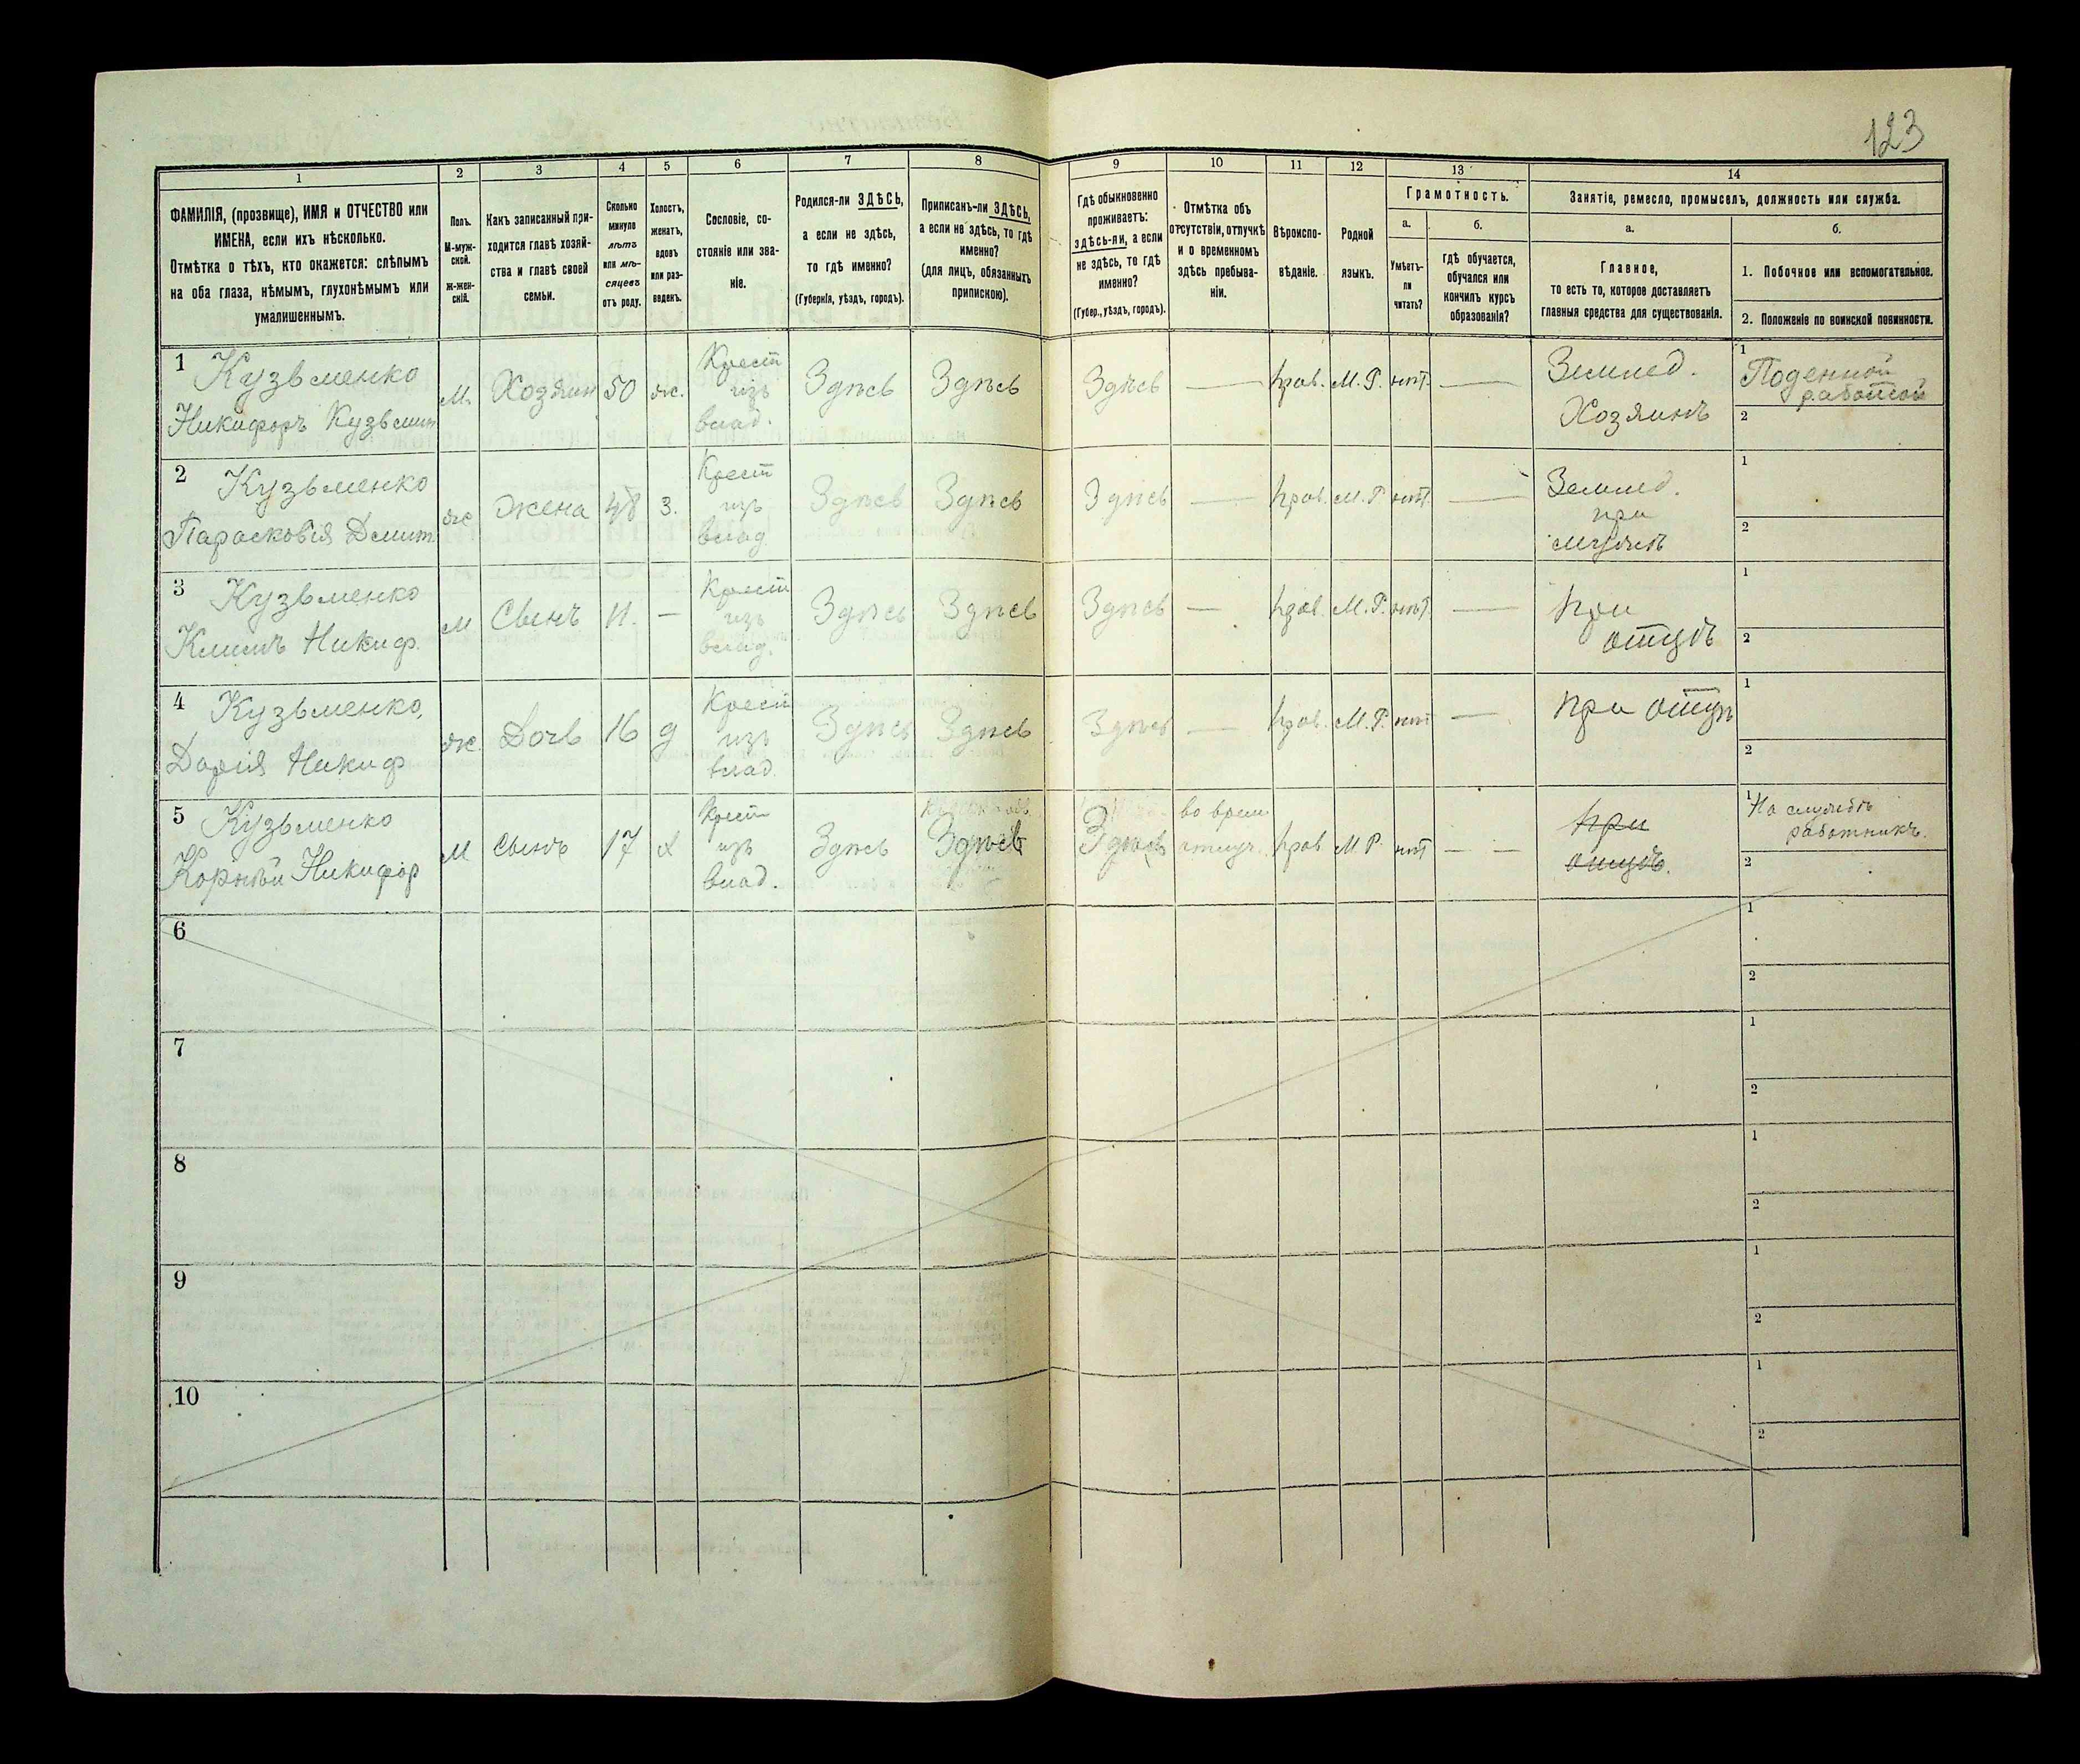 123
1
2
3
4
5
6
7
8
9
10
11
12
13
14
ФАМИЛІЯ, (прозвище), ИМЯ и ОТЧЕСТВО или
ИМЕНА, если ихъ нѣсколько.
Отмѣтка о тѣхъ, кто окажется: слѣпымъ
на оба глаза, нѣмымъ, глухонѣмымъ или
умалишеннымъ.
Полъ.
М-муж-
ской.
Ж-жен-
скій.
Какъ записанный при-
ходится главѣ хозяй-
ства и главѣ своей
семьи.
Сколько
минуло
лѣтъ
или мѣ-
сяцевъ
отъ роду.
Холостъ,
женатъ,
вдовъ
или раз-
веденъ.
Сословіе, со-
стояніе или зва-
ніе.
Родился-ли ЗДѢСЬ,
а если не здѣсь,
то гдѣ именно?
(Губернія, уѣздъ, городъ).
Приписанъ-ли ЗДѢСЬ,
а если не здѣсь, то гдѣ
именно?
(для лицъ, обязанныхъ
припискою).
Гдѣ обыкновенно
проживаетъ:
здѣсь-ли, а если
не здѣсь, то гдѣ
именно?
(Губер., уѣздъ, городъ).
Отмѣтка объ
отсутствіи, отлучкѣ
и о временномъ
здѣсь пребыва-
ніи.
Вѣроиспо-
вѣданіе.
Родной
языкъ.
Грамотность.
а.
Умѣетъ-
ли
читать?
б.
Гдѣ обучается,
обучался или
кончилъ курсъ
образованія?
Занятіе, ремесло, промыселъ, должность или служба.
а.
Главное,
то есть то, которое доставляетъ
главныя средства для существованія.
б.
1. Побочное или вспомогательное.
2. Положеніе по воинской повинности.
1 Кузьменко
Никифоръ Кузьмин
М.
Хозяин
50
ж.
Крест
изъ
влад.
Здѣсь
Здѣсь
Здѣсь
—
прав.
М. Р.
нѣт.
—
Землед.
Хозяинъ
1 Поденной
работой
2
2 Кузьменко
Парасковія Дмит.
ж
жена
48
з.
Крест
изъ
влад
Здѣсь
Здѣсь
Здѣсь
—
прав.
М. Р
нѣт.
—
Землед.
при
мужѣ
1
2
3 Кузьменко
Климъ Никиф.
М
Сынъ
11.
—
Крест
изъ
влад.
Здѣсь
Здѣсь
Здѣсь
—
прав.
М. Р.
нѣт.
—
при
отцѣ
1
2
4 Кузьменко,
Дарія Никиф
ж.
Дочь
16
д
Крест
изъ
влад
Здѣсь
Здѣсь
Здѣсь
—
прав.
М. Р.
нѣт
—
при отцѣ
1
2
5 Кузьменко
Корнѣй Никифор
М
Сынъ
17
х
Крест
изъ
влад.
Здѣсь
Здѣсь
Здѣсь
во врем
отлуч.
прав
М Р.
нѣт
— —
при
отцѣ.
1 На службѣ
работникъ.
2
6
1
2
7
1
2
8
1
2
9
1
2
10
1
2